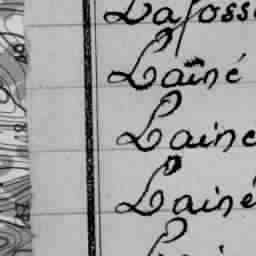 Lafosse
Lainé
Lainé
Lainé